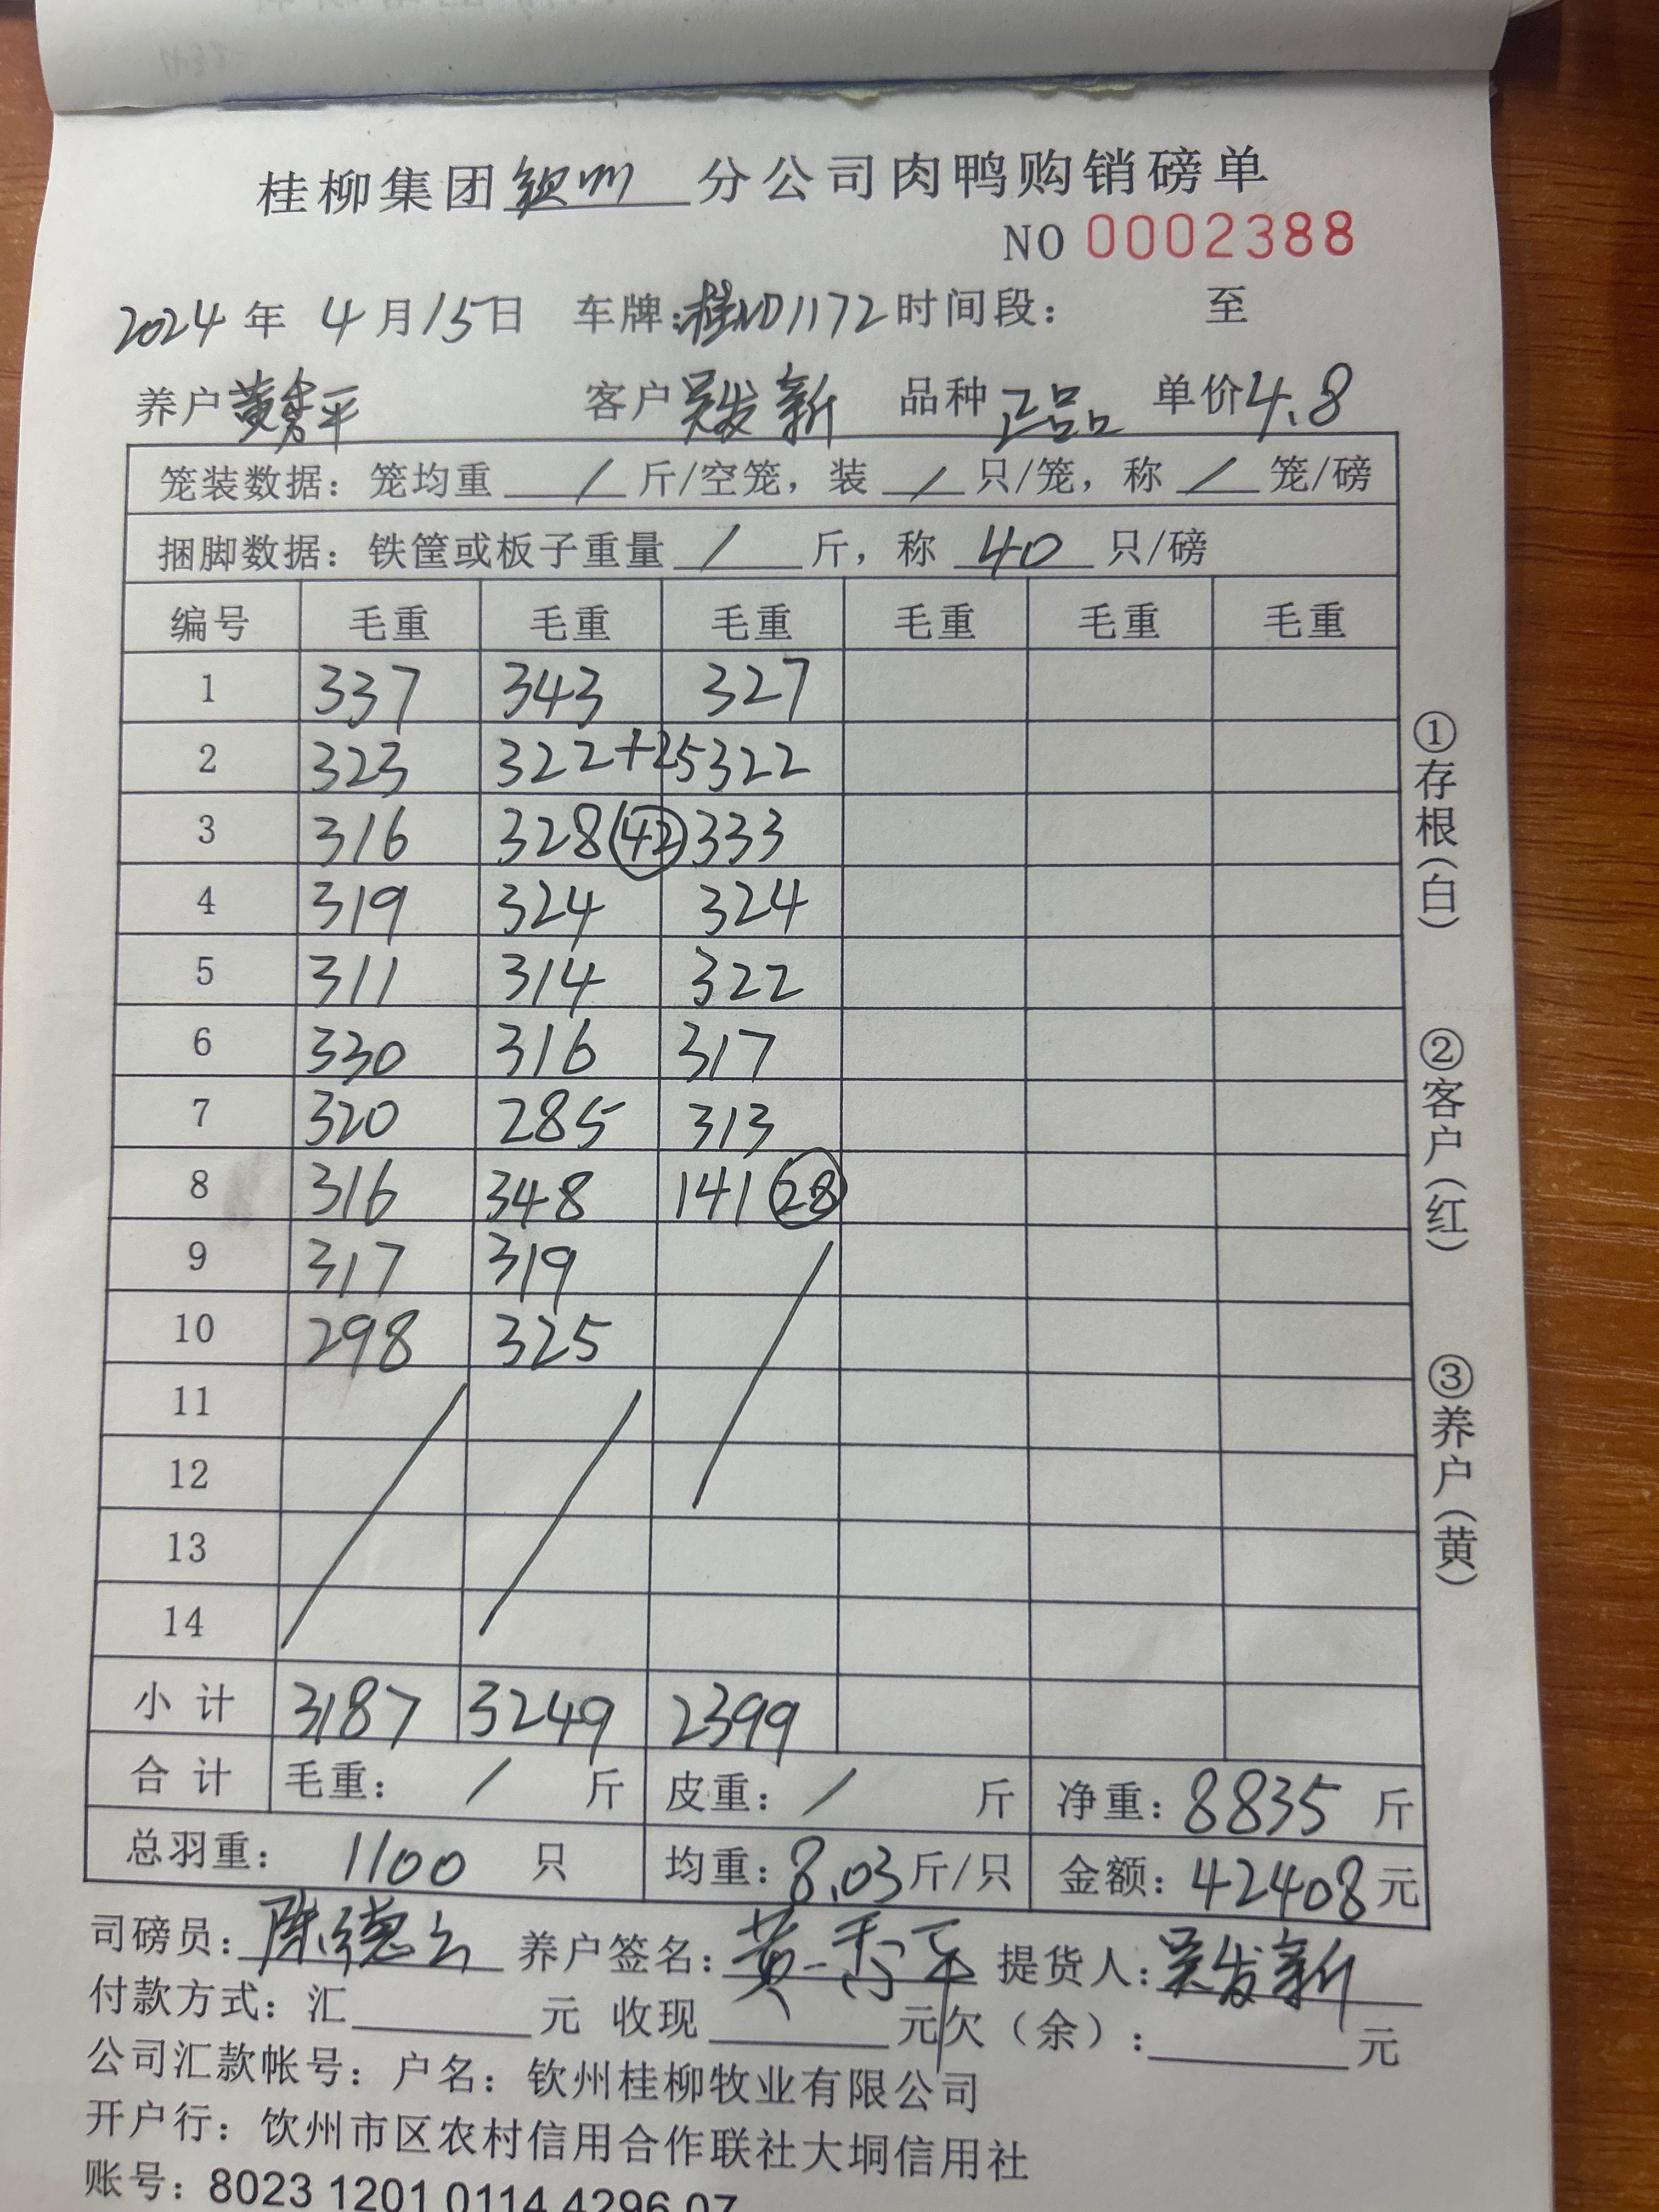 桂柳集团钦州分公司肉鸭购销磅单
NO 0002388
2024年 4月15日 车牌:桂ND1172 时间段: 至
养户 黄秀平 客户 吴发新 品种 正品 单价4.8
笼装数据:笼均重 / 斤/空笼,装 / 只/笼,称 / 笼/磅
捆脚数据:铁筐或板子重量 / 斤,称 40 只/磅
编号 毛重 毛重 毛重 毛重 毛重 毛重
1 337 343 327
2 323 322+25 322
3 316 328 (42) 333
4 319 324 324
5 311 314 322
6 330 316 317
7 320 285 313
8 316 348 141 (28)
9 317 319
10 298 325
11
12
13
14
小计 3187 3249 2399
合计 毛重: / 斤 皮重: / 斤 净重:8835 斤
总羽重: 1100 只 均重:8.03斤/只 金额:42408元
司磅员:陈德云 养户签名:黄秀平 提货人:吴发新
付款方式:汇 元 收现 元欠(余): 元
公司汇款帐号:户名:钦州桂柳牧业有限公司
开户行:钦州市区农村信用合作联社大垌信用社
账号:8023 1201 0114 4296 07
①存根(白) ②客户(红) ③养户(黄)